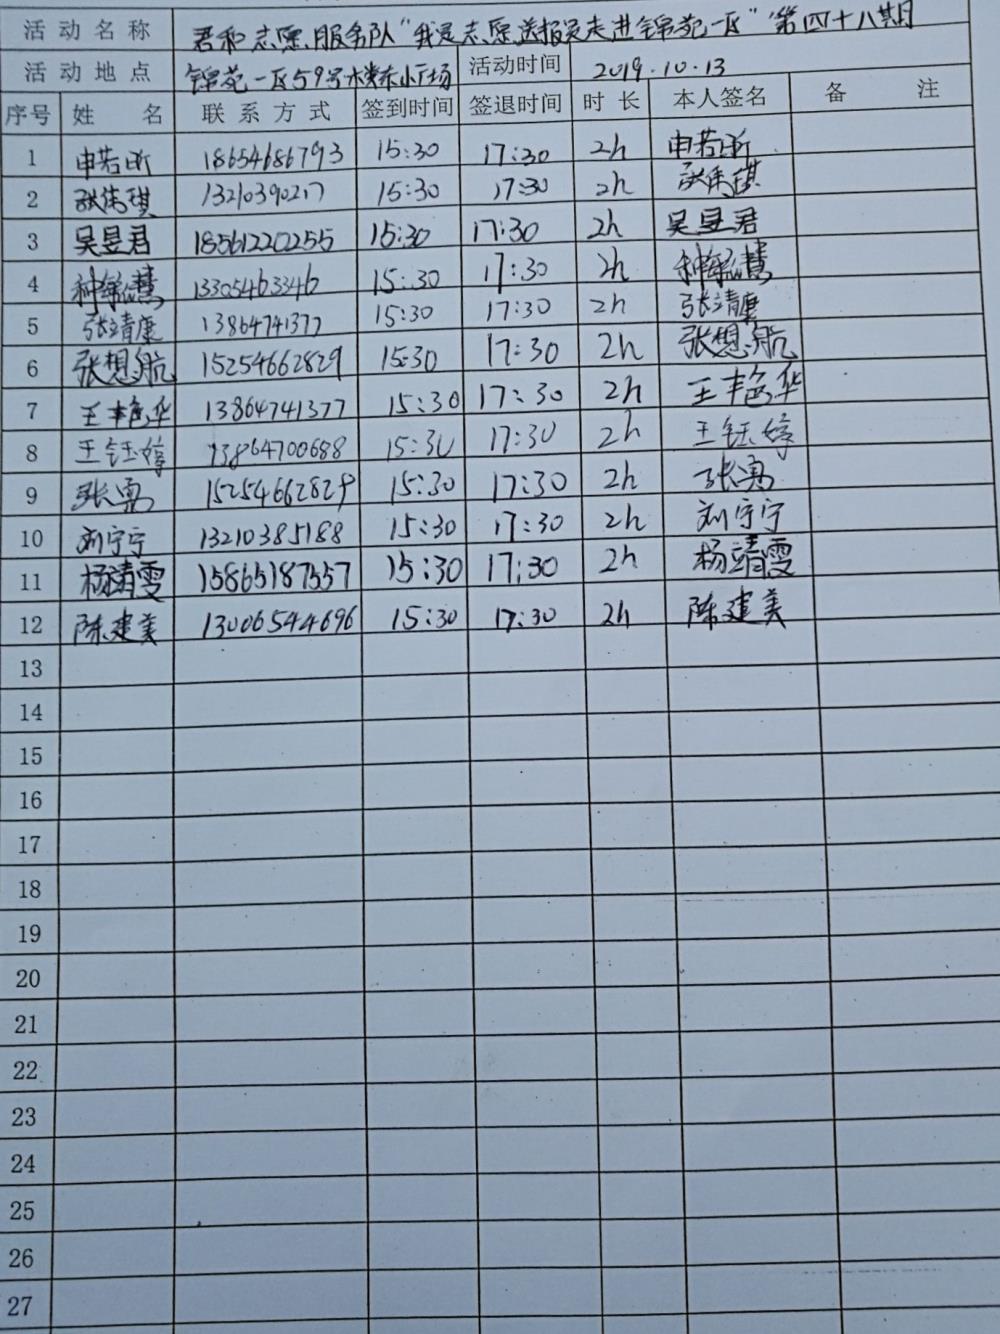 活动名称 君和志愿服务队“我是志愿送报员走进锦苑一区”第四十八期
活动地点 锦苑一区59号楼东小广场 活动时间 2019.10.13
序号 姓名 联系方式 签到时间 签退时间 时长 本人签名 备注
1 申若昕 18654686793 15:30 17:30 2h 申若昕
2 张伟琪 13210390217 15:30 17:30 2h 张伟琪
3 吴昱君 18561220255 15:30 17:30 2h 吴昱君
4 种敏慧 13305463346 15:30 17:30 2h 种敏慧
5 张靖康 13864741377 15:30 17:30 2h 张靖康
6 张想航 15254662829 15:30 17:30 2h 张想航
7 王丰艳华 13864741377 15:30 17:30 2h 王丰艳华
8 王钰婷 13864700688 15:30 17:30 2h 王钰婷
9 张勇 15254662829 15:30 17:30 2h 张勇
10 刘宁宁 13210385188 15:30 17:30 2h 刘宁宁
11 杨靖雯 15865187557 15:30 17:30 2h 杨靖雯
12 陈建美 13006544696 15:30 17:30 2h 陈建美
13
14
15
16
17
18
19
20
21
22
23
24
25
26
27